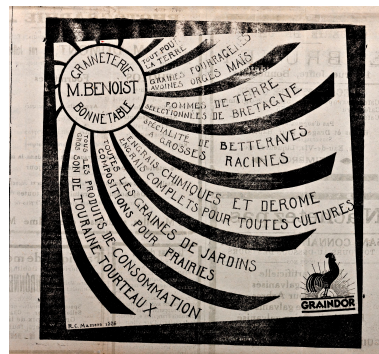 GRAINETERIE
M.BENOIST
BONNÉTABLE
TOUT POUR
LA TERRE
GRAINES FOURRAGÈRES
AVOINES ORGES MAÏS
POMMES DE TERRE
SÉLECTIONNÉES DE BRETAGNE
SPÉCIALITÉ DE BETTERAVES
A GROSSES RACINES
ENGRAIS CHIMIQUES ET DEROME
ENGRAIS COMPLETS POUR TOUTES CULTURES
TOUTES LES GRAINES DE JARDINS
COMPOSITIONS POUR PRAIRIES
TOUS LES PRODUITS DE CONSOMMATION
GROS SON DE TOURAINE TOURTEAUX
GRAINDOR